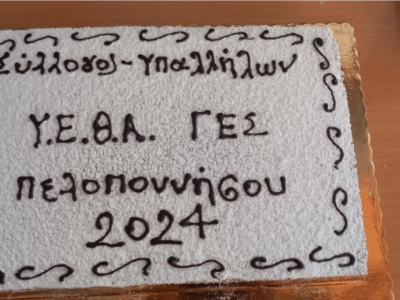 Σύλλογος - Υπαλλήλων
Υ.Ε.Θ.Α. ΓΕΣ
Πελοποννήσου
2024